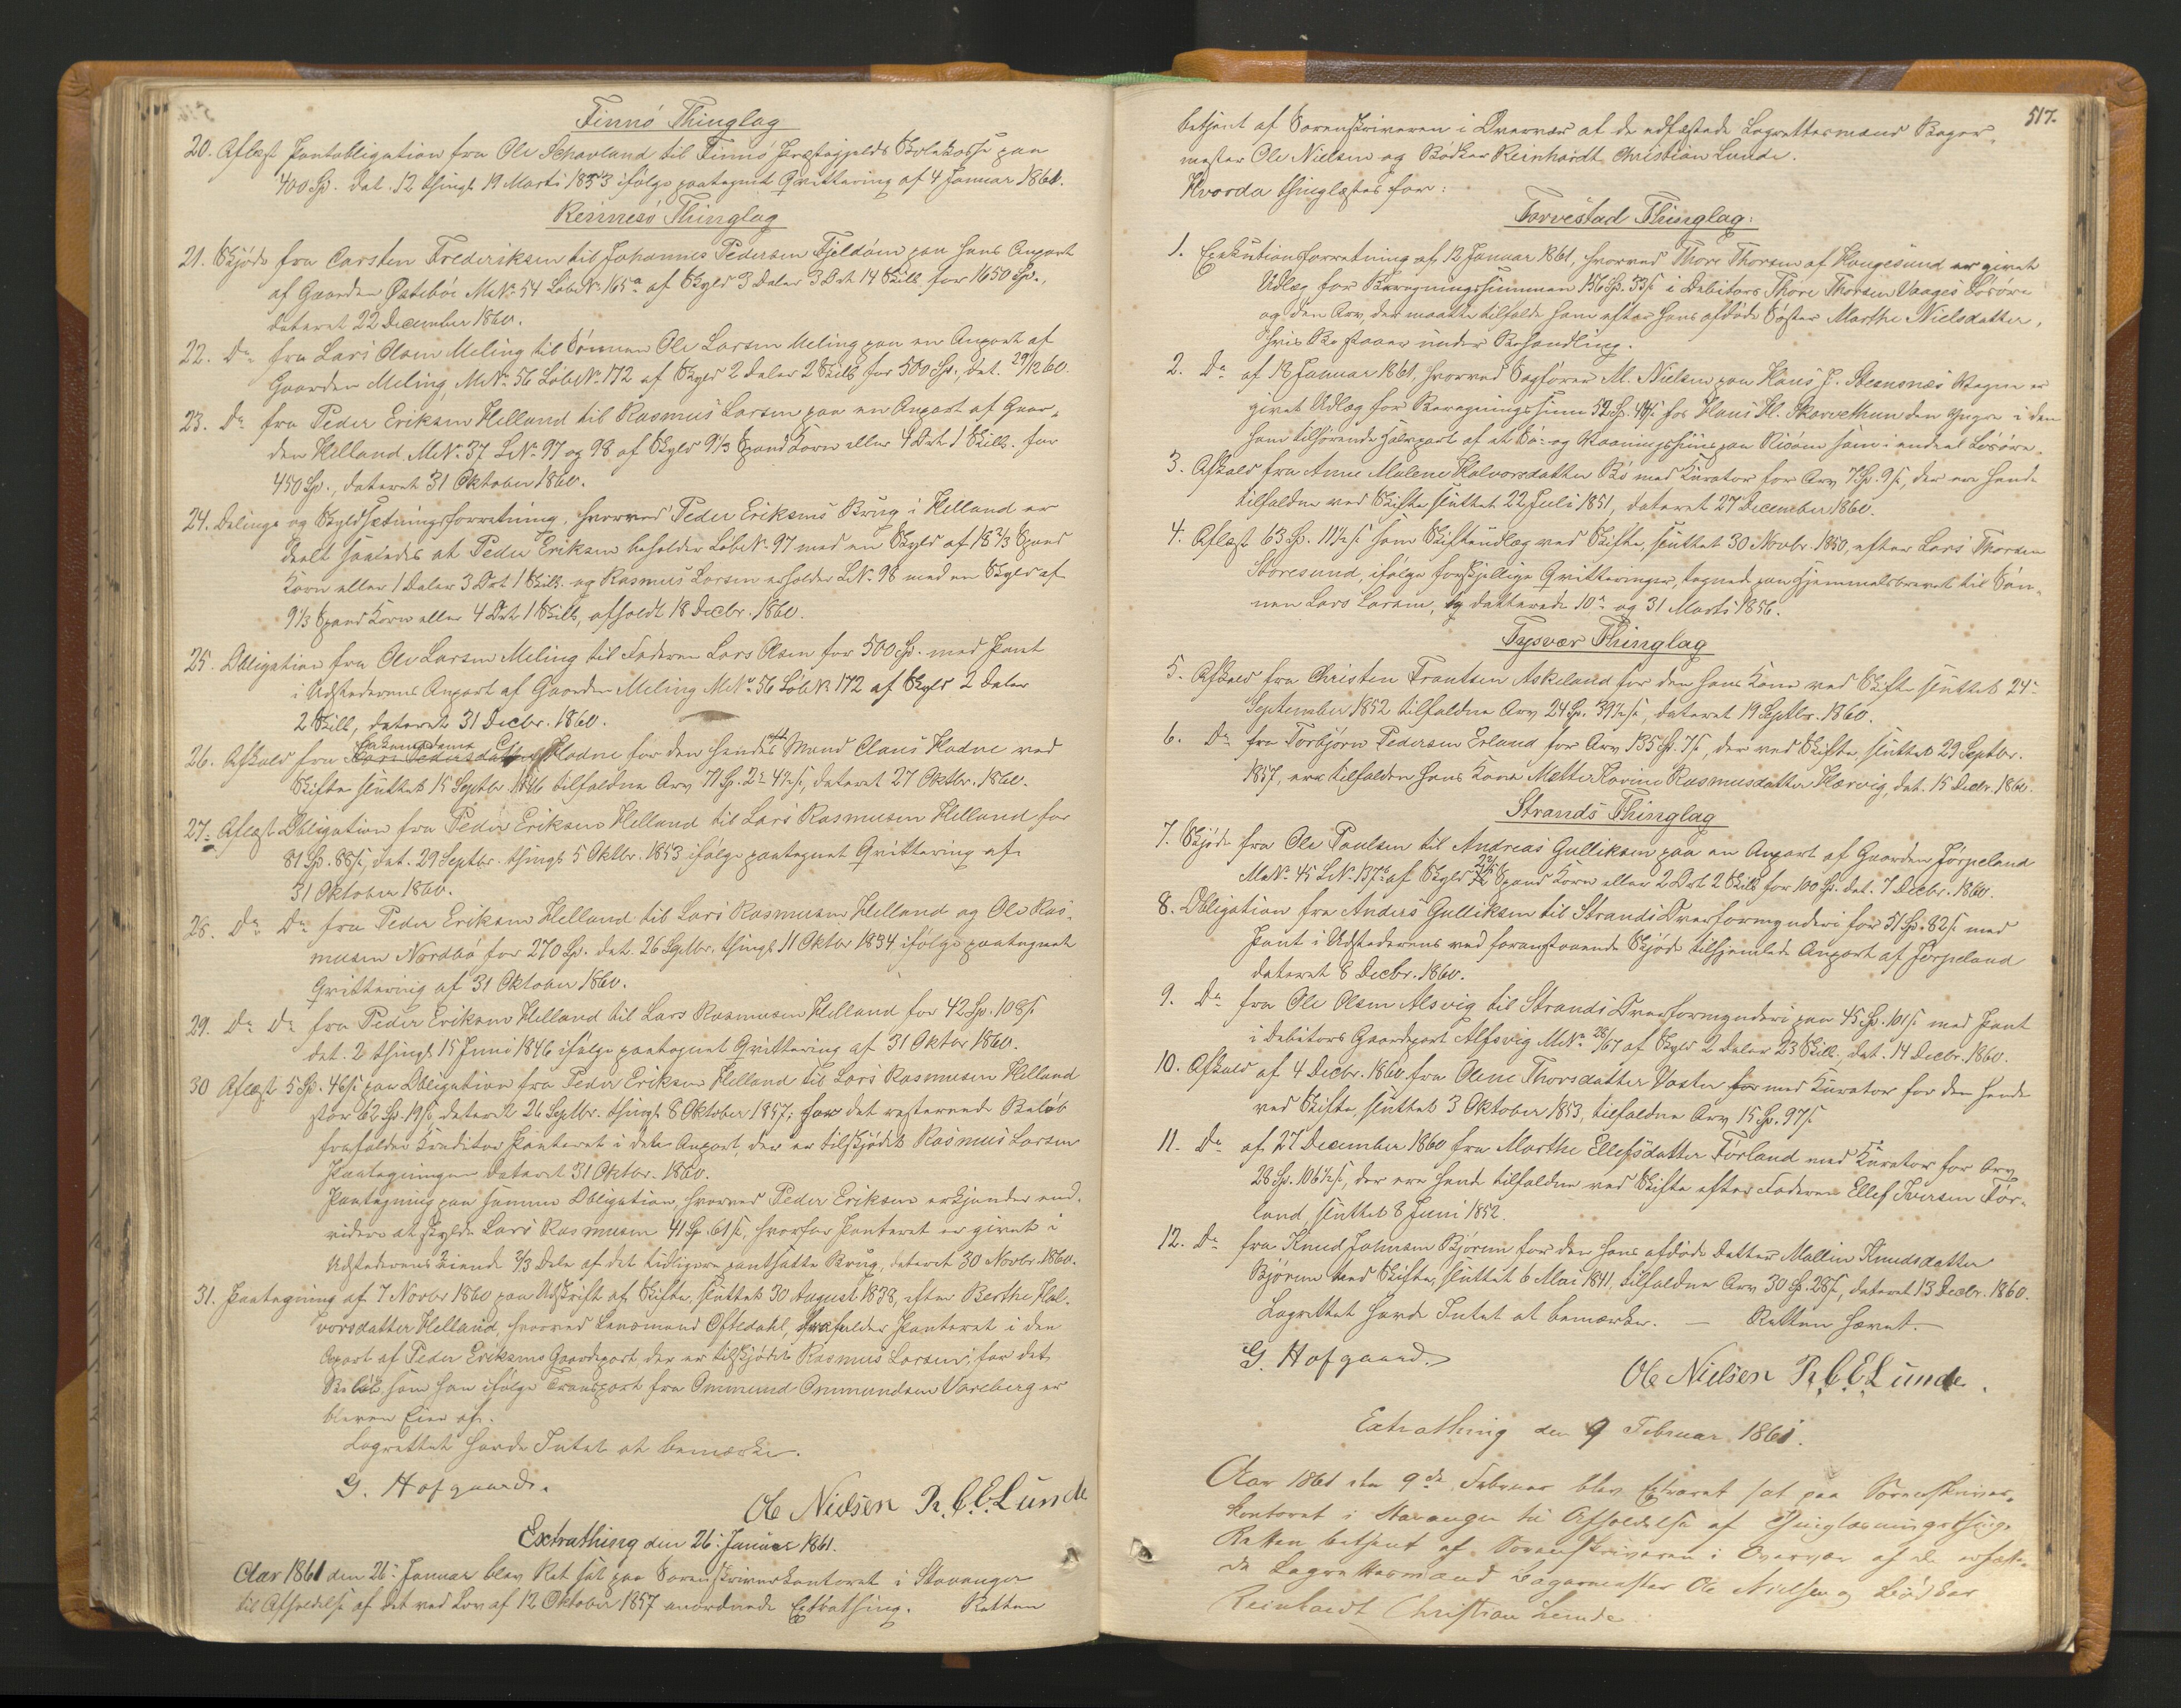 Finnö Thinglag
20. Aflæst Pantobligation fra Ole Schavland til Finnö Præstegjelds Skolekasse paa
400 Sp. dat. 12 thingl. 19 Marts 1853 ifølge paategnet Qvittering af 4 Januar 1861.
Rennesö Thinglag
21. Skjöde fra Carsten Frederiksen til Johannes Pedersen Fjeldöen paa hans Anpart
af Gaarden Östebö MNo 54 LøbeNo 165a af Skyld 3 Daler 3 Ort 14 Skill. for 1650 Sp.,
dateret 22 December 1860.
22. Do fra Lars Olsen Meling til Sönnen Ole Larsen Meling paa en Anpart af
Gaarden Meling, MNo 56 LøbeNo 172 af Skyld 2 Daler 2 Skill for 500 Sp., dat. 29/12 60.
23. Do fra Peder Eriksen Helland til Rasmus Larsen paa en Anpart af Gaar-
den Helland MNo 37 LNo 97 og 98 af Skyld 9 1/3 Spand Korn eller 4 Ort 1 Skill. for
450 Sp., dateret 31 Oktober 1860.
24. Delings og Skyldsætningsforretning, hvorved Peder Eriksens Brug i Helland er
deelt saaledes at Peder Eriksen beholder LøbeNo 97 med en Skyld af 18 2/3 Spand
Korn eller 1 Daler 3 Ort 1 Skill. og Rasmus Larsen erholder LNo 98 med en Skyld af
9 1/3 Spand Korn eller 4 Ort 1 Skill, afholdt 18 Decbr. 1860.
25. Obligation fra Ole Larsen Meling til Faderen Lars Olsen for 500 Sp. med Pant
i Udstederens Anpart af Gaarden Meling MNo 56 LøbeNo 172 af Skyld 2 Daler
2 Skill, dateret 31 Decbr. 1860.
26. Afkald fra Hodne for den hendes Mand Claus Hodne ved
Skifte sluttet 15 Septbr. 1846 tilfaldne Arv 71 Sp. dateret 27 Oktbr. 1860.
27. Aflæst Obligation fra Peder Eriksen Helland til Lars Rasmusen Helland for
81 Sp. 88 s, dat. 29 Septbr. thingl. 5 Oktbr. 1853 ifølge paategnet Qvittering af
31 Oktober 1860.
28. Do Do fra Peder Eriksen Helland til Lars Rasmusen Helland og Ole Ras-
musen Nordbö for 270 Sp. dat. 26 Septbr. thingl. 11 Oktbr 1854 ifølge paategnet
Qvittering af 31 Oktober 1860.
29. Do Do fra Peder Eriksen Helland til Lars Rasmusen Helland for 42 Sp. 108 s
dat. 2 thingl. 15 Juni 1846 ifølge paategnet Qvittering af 31 Oktbr 1860.
30 Aflæst 5 Sp. 46 s paa Obligation fra Peder Eriksen Helland til Lars Rasmusen Helland
stor 62 Sp. 19 s, dateret 26 Septbr. thingl. 8 Oktober 1857; for det resterende Beløb
frafalder Kreditor Panteret i den Anpart, der er tilskjödet Rasmus Larsen
Paategningen dateret 31 Oktbr. 1860.
Paategning paa samme Obligation, hvorved Peder Eriksen erkjender end-
videre at skylde Lars Rasmusen 41 Sp. 61 s, hvorfor Panteret er givet i
Udstederens eiende 2/3 Dele af det tidligere pantsatte Brug, dateret 30 Novbr. 1860.
31. Paategning af 7 Novbr 1860 paa Udskrift af Skifte, sluttet 30 August 1838, efter Berthe Hal-
vorsdatter Helland, hvorved Lensmand Oftedahl, frafalder Panteret i den
Anpart af Peder Eriksens Gaardpart, der er tilskjödet Rasmus Larsen, for det
Beløb, som han ifølge Transport fra Ommund Ommundsen Vareberg er
bleven Eier af.
Lagrettet havde Intet at bemærke.
G. Hofgaard.
Ole Nielsen R. C. C. Lunde
Extrathing den 26. Januar 1861.
Aar 1861 den 26. Januar blev Ret sat paa Sorenskriverkontoret i Stavanger
til Afholdelse af det ved Lov af 12 Oktober 1857 anordnede Extrathing. Retten
517.
betjent af Sorenskriveren i Overvær af de edfæstede Lagrettesmænd Bager-
mester Ole Nielsen og Bödker Reinhardt Christian Lunde.
Hvorda thinglæstes for:
Torvestad Thinglag.
1. Exekutionsforretning af 12 Januar 1861, hvorved Thore Thorsen af Haugesund er givet
Udlæg for Beregningssummen 156 Sp. 33 s i Debitors Thore Thorsen Vaages Lösöre
og den Arv, der maatte tilfalde ham efter hans afdöde Söster Marthe Nielsdatter,
hvis Bo staaer under Behandling.
2. Do af 18 Januar 1861, hvorved Sagförer M. Nielsen paa Hans J. Steensnæs Vegne er
givet Udlæg for Beregningssum 52 Sp. 44 s hos Hans Hl. Skarvethun den yngre i den
ham tilhörende Halvpart af et Sö- og Vaaningshuus paa Risöen samt i endeel Lösöre.
3. Afkald fra Anne Malene Halvorsdatter Bö med Kurator for Arv 7 Sp. 9 s, der ere hende
tilfaldne ved Skifte sluttet 22 Juli 1851, dateret 27 December 1860.
4. Aflæst 63 Sp. 11 1/2 s som Skifteudlæg ved Skifte, sluttet 30 Novbr. 1850, efter Lars Thorsen
Storesund, ifølge forskjellige Qvitteringer, tegnede paa Hjemmelsbrevet til Søn-
nen Lars Larsen, og datterede 10de og 31 Marts 1856.
Tysvær Thinglag
5. Afkald fra Christen Frantsen Askeland for den hans Kone ved Skifte sluttet 24de
September 1852 tilfaldne Arv 24 Sp. 39 1/2 s, dateret 19 Septbr. 1860.
6. Do fra Torbjörn Pedersen Erland for Arv 135 Sp. 7 s, der ved Skifte, sluttet 29 Septbr.
1857, ere tilfalden hans Kone Mette Karine Rasmusdatter Hervig, dat. 15 Decbr. 1860.
Strands Thinglag
7. Skjöde fra Ole Paulsen til Andreas Gulliksen paa en Anpart af Gaarden Jörpeland
MNo 45 LNo 137c af Skyld Spand Korn eller 2 Ort 2 Skill for 100 Sp. dat. 7 Decbr. 1860.
8. Obligation fra Anders Gulliksen til Strands Overformynderi for 51 Sp. 82 s med
Pant i Udstederens ved foranstaaende Skjöde tilhjemlede Anpart af Jörpeland
dateret 8 Decbr. 1860.
9. Do fra Ole Olsen Alsvig til Strands Overformynderi paa 45 Sp. 101 s med Pant
i Debitors Gaardpart Alfsvig MNo 28/67 af Skyld 2 Daler 23 Skill, dat. 14 Decbr. 1860.
10. Afkald af 4 Decbr. 1860 fra Olene Thorsdatter Vaster med Kurator for den hende
ved Skifte, sluttet 3 Oktober 1853, tilfaldne Arv 15 Sp. 97 s
11. Do af 27 December 1860 fra Marthe Ellefsdatter Förland med Kurator for Arv
28 Sp. 106 1/2 s, der ere hende tilfaldne ved Skifte efter Faderen Ellef Iversen För-
land, sluttet 8 Juni 1852.
12. Do fra Knud Johnsen Björen for den hans afdöde Datter Mallin Knudsdatter
Björen ved Skifte, sluttet 6 Mai 1841, tilfaldne Arv 30 Sp. 28 s, dateret 13 Decbr. 1860.
Lagrettet havde Intet at bemærke. — Retten hævet. —
G. Hofgaard.
Ole Nielsen R. C. C. Lunde.
Extrathing den 9 Februar 1861.
Aar 1861 den 9de Februar blev Extraret sat paa Sorenskriver-
kontoret i Stavanger til Afholdelse af Thinglæsningsthing.
Retten betjent af Sorenskriveren i Overvær af de edfæste-
de Lagrettesmænd Bagermester Ole Nielsen og Bödker
Reinhardt Christian Lunde.